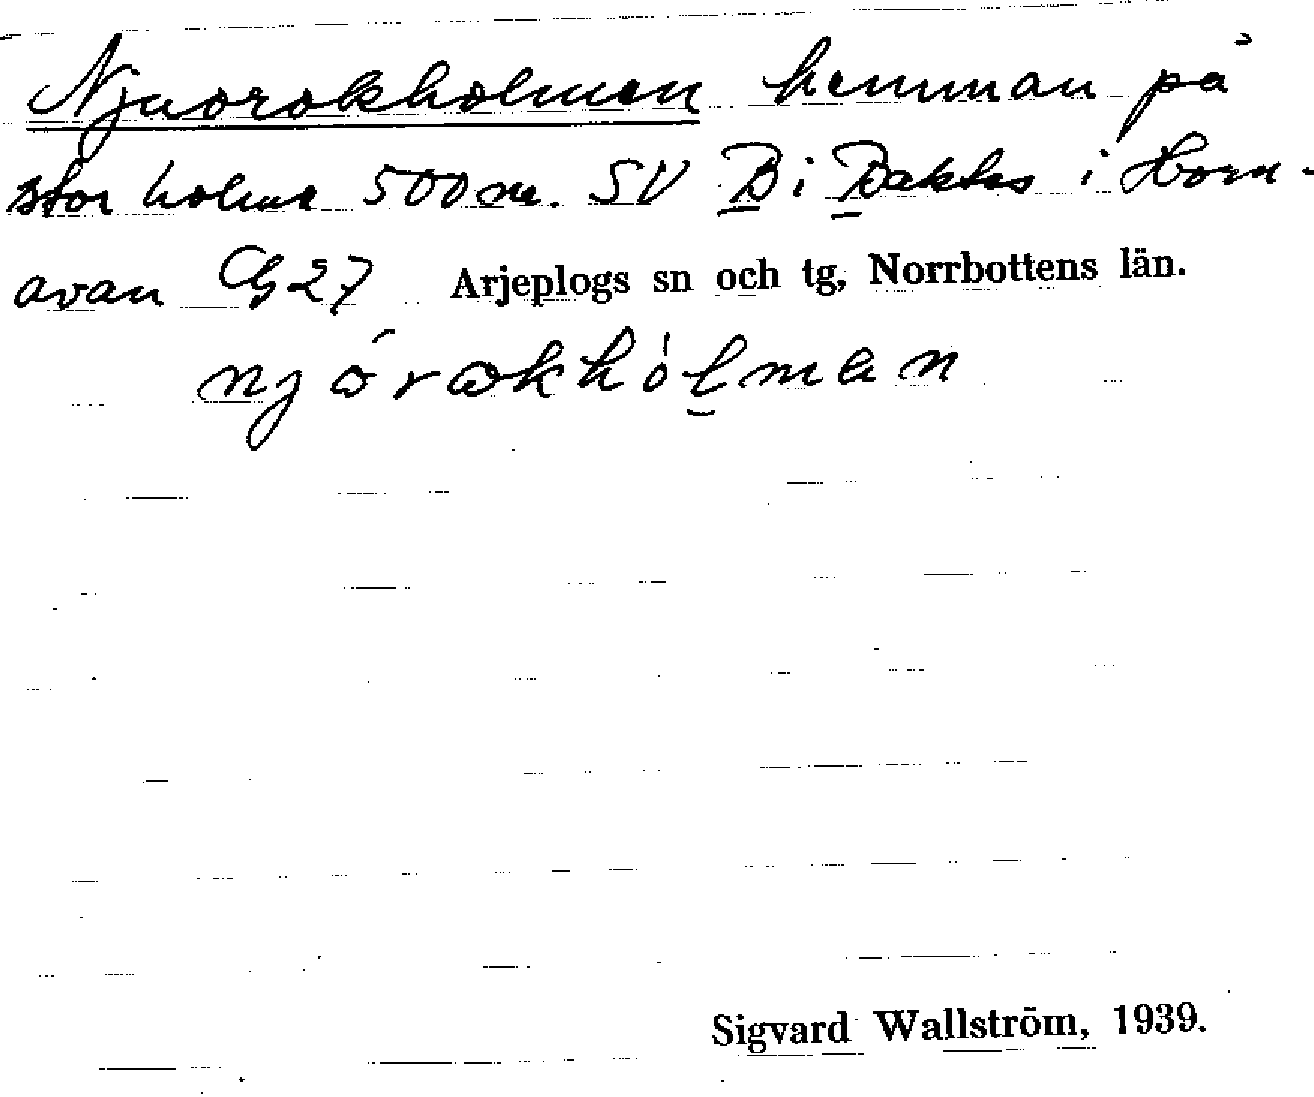 Njuorokholmen hemman på
stor holme 500 m. SV B i Baktes i Horn-
avan G27 Arjeplogs sn och tg, Norrbottens län.
njórɷkhólmɐn
Sigvard Wallström, 1939.